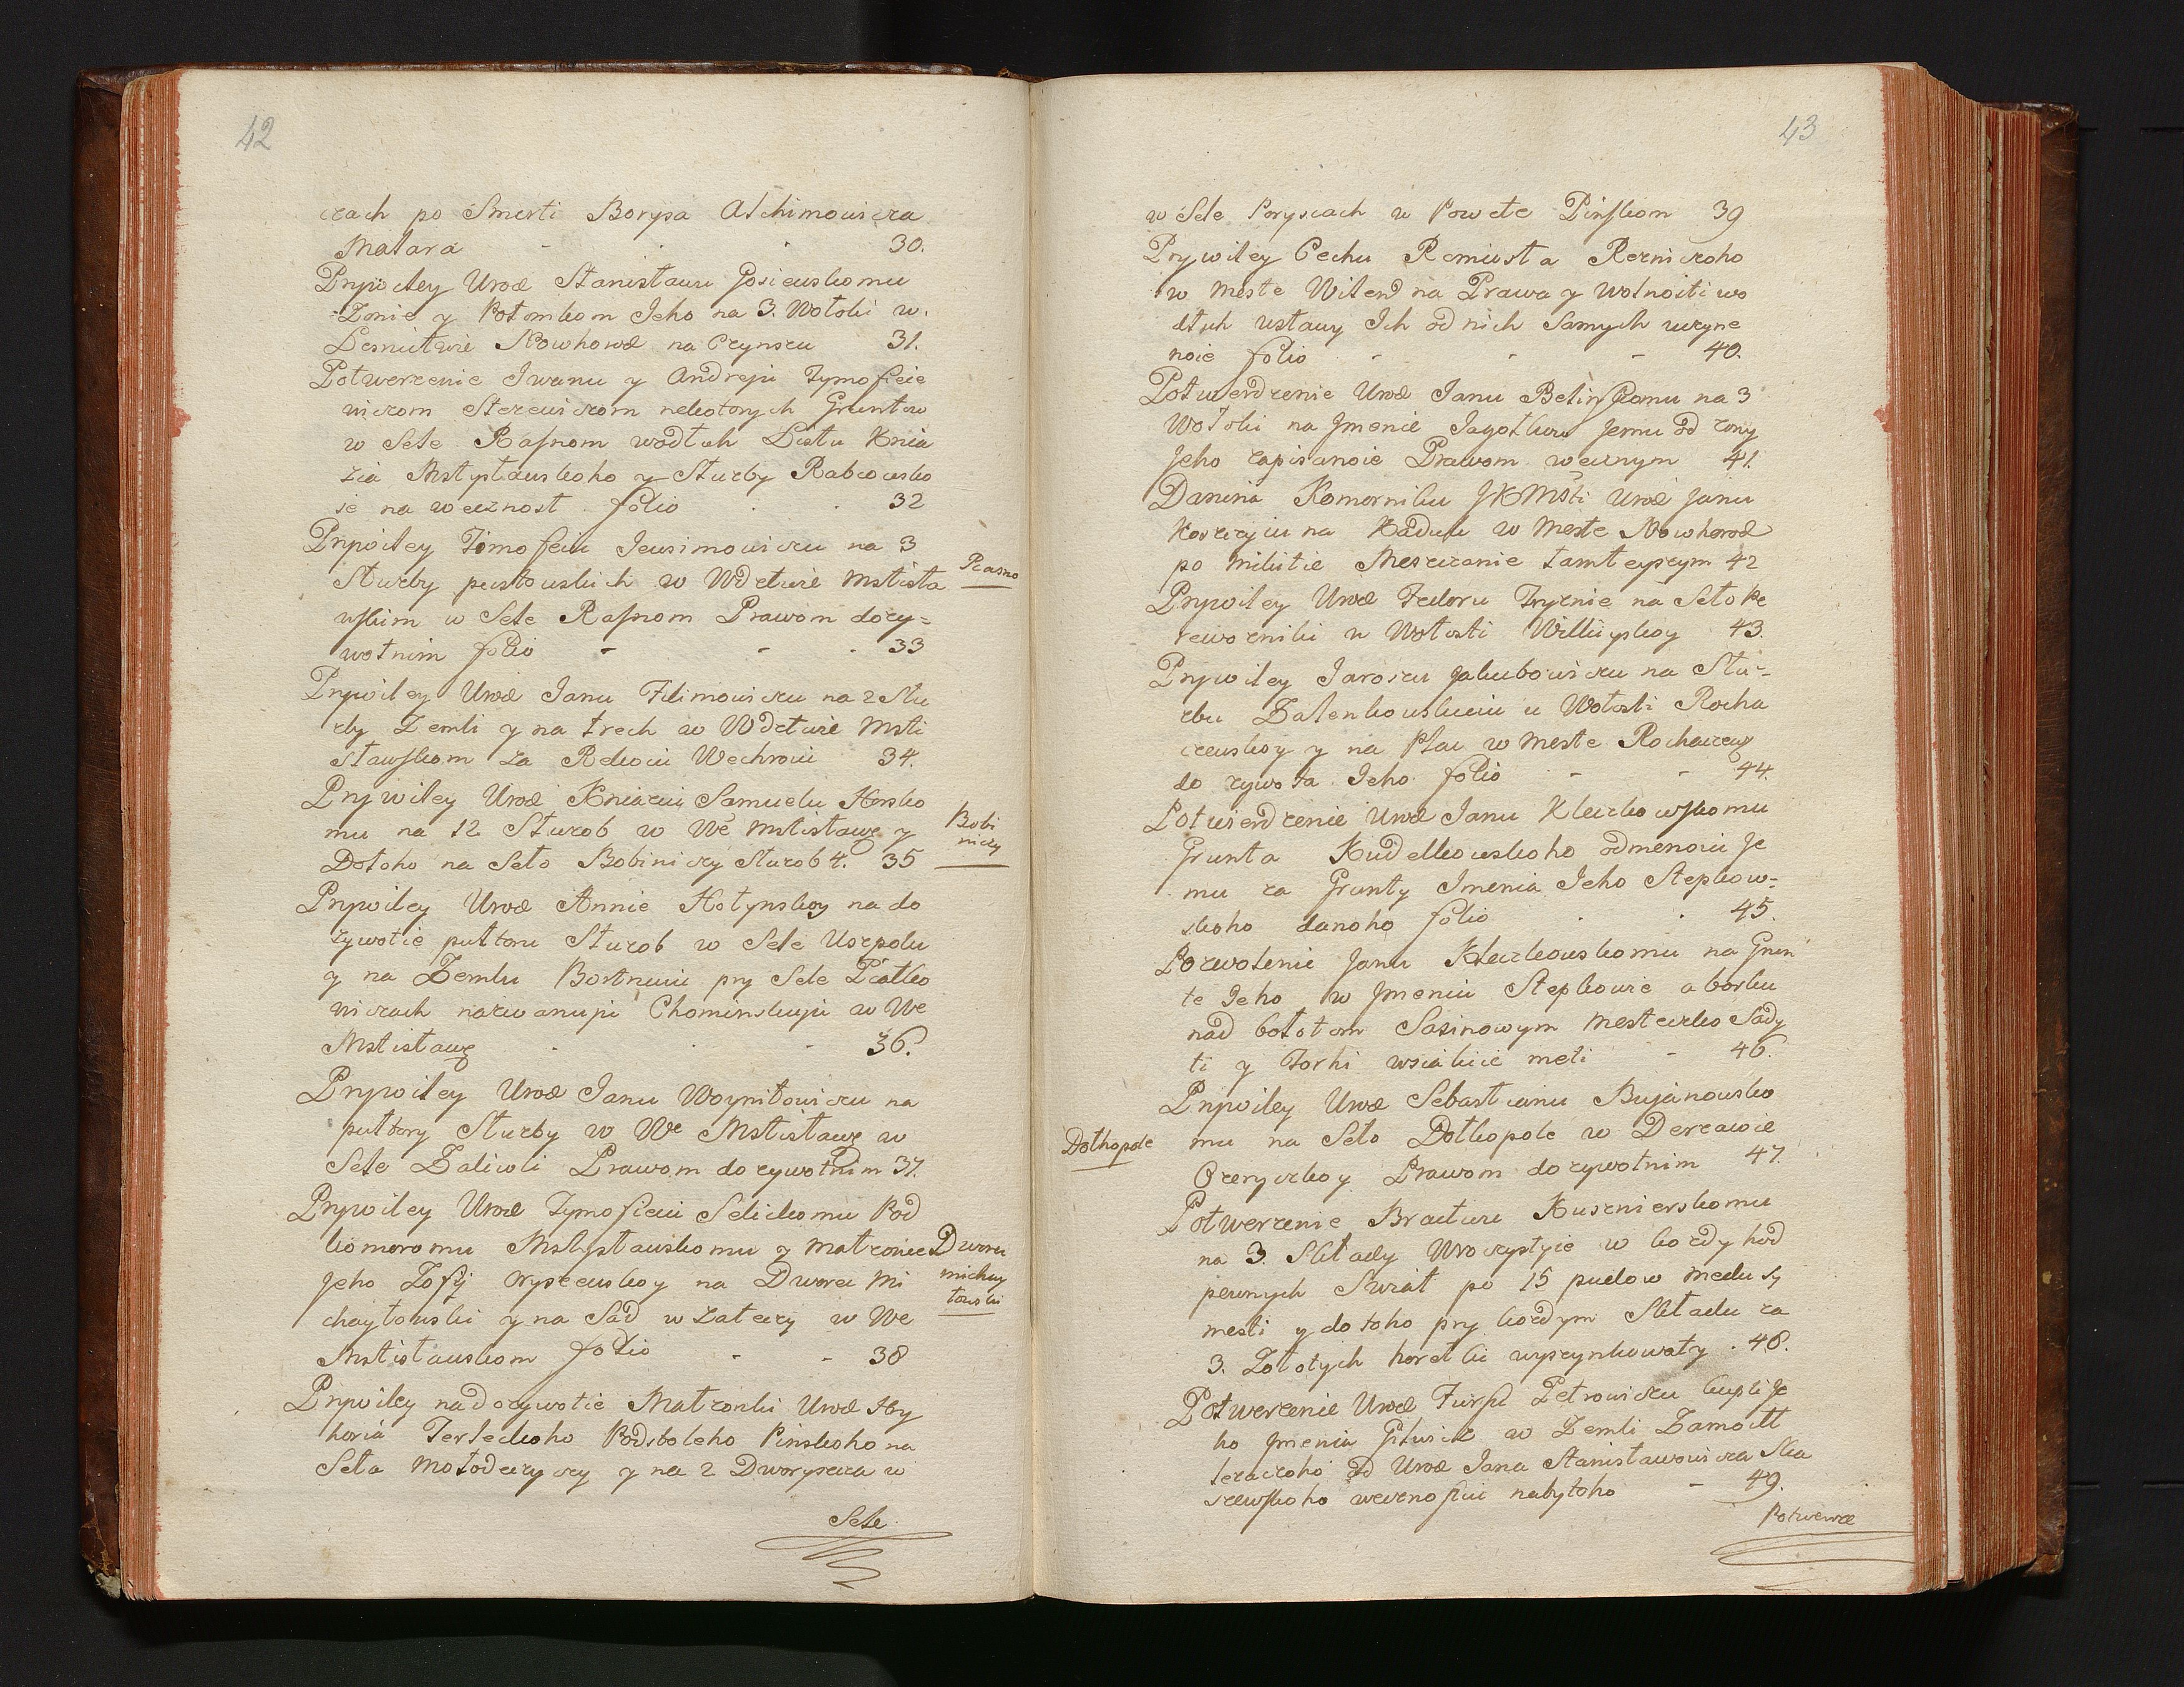 42
czach po Smerti Borysa Alchimowicza
Malara - - - 30.
Prywiley Urod Stanisławu Gosiewskomu
Zonie y Potomkom Jeho na 3. Wołoki w.
Lesnictwie Nowhorod na Czynszu 31.
Potwerzenie Iwanu y Andreju Tymofieie
wiczom Sterewiczom nekotorych Gruntow
w Sele Rasnom wodłuh Listu Knia
zia Mstysławskoho y Słuzby Rabcowsko
je na wecznost folio . . 32
Prywiley Timofeiu Jewsimowiczu na 3
Słuzby pustowskich w Wdztwie Mstisła
wskim w Sele Rasnom Prawom dozy=
wotnim folio - - - 33
Rasno
Prywiley Urod Janu Filimowiczu na 2 Słu
zby Zemli y na trech w Wdztwie Msti
sławskom za Rekoiu Wechroiu 34.
Prywiley Urod Kniaziu Samuelu Horsko
mu na 12 Słuzob w We Mstisławs y
Dotoho na Seło Bobiniczy Słuzob 4. 35
Bobi
niczy
Prywiley Urod Annie Hotynskoy na do
zywotie pułtoru Słuzob w Sele Uszpolu
y na Zemlu Bortnuiu pry Sele Piatko
wiczach nazwanuju Chominskuju w We
Mstisławs - - - 36.
Prywiley Urod Janu Woyniłowiczu na
pułtory Słuzby w We Mstisławs w
Sele Zaliwli Prawom dozywotnim 37.
Prywiley Urod Tymofieiu Selickomu Pod
komoromu Mstysławskomu y Małzonce
Jeho Zofij Wyszewskoy na Dworec Mi
chayłowski y na Sad w Zateczy w We
Mstisławskom folio - - 38
Dworec
michay
łowski
Prywiley na dozywotie Małzonki Urod Hry
horia Terleckoho Podstoleho Pinskoho na
Seła Mołodeczyczy y na 2 Dworyszcza w
Sele
43
w Sele Poryscach w Powete Pinskom 39
Prywiley Cechu Remiosła Reznickoho
w Meste Witend na Prawa y Wolnosti wo
dłuh ustawy Ich od nich Samych uczyne
noie folio - - - 40.
Potwierdzenie Urod Janu Belinskomu na 3
Wołoki na Jmenie Jagołkow Jemu od zony
Jeho zapisanoie Prawom wecznym 41.
Danina Komorniku JKMsti Urod Janu
Koszczyiu na Kaduk w Meste Nowhorod
po Milutie Meszczanie tamteyszym 42
Prywiley Urod Fedoru Tryznie na Seło Pe
rewozniki w Wołosti Willuyskoy 43.
Prywiley Jaroszu Jakubowiczu na Słu=
zbu Zalenkowskuiu u Wołosti Rocha
czewskoy y na Plac w Meste Rochaczews
do zywota Jeho folio - - 44.
Potwierdzenie Urod Janu Kleczkowskomu
Grunta Kudelkowskoho odmenoiu Je
mu za Grunty Imenia Jeho Stepkow=
skoho danoho folio . . 45.
Pozwolenie Janu Kleczkowskomu na Grun
te Jeho w Jmeniu Stepkowie a borku
nad bołotom Sasinowym Mesteczko Sady
ti y Torhi wsiakiie meti - 46.
Prywiley Urod Sebastianu Bujanowsko
mu na Seło Dolhopole w Derzawie
Czeryckoy Prawom dozywotnim 47.
Dolhopole
Potwerzenie Bractwu Kusznierskomu
na 3. Składy Uroczystyie w kozdy hod
pewnych Swiat po 15 pudow Medu Sy
mesti y do toho pry kozdym Składu za
3. Zołotych horełki wyszynkowaty . 48.
Potwerzenie Urod Jurju Petrowiczu kupli Je
ho Jmenia Głusicz w Zemli Zamoitt
leżaczoho od Urod Jana Stanisławowicza Sta
szewskoho wecznostiu nabytoho - 49.
Potwerze